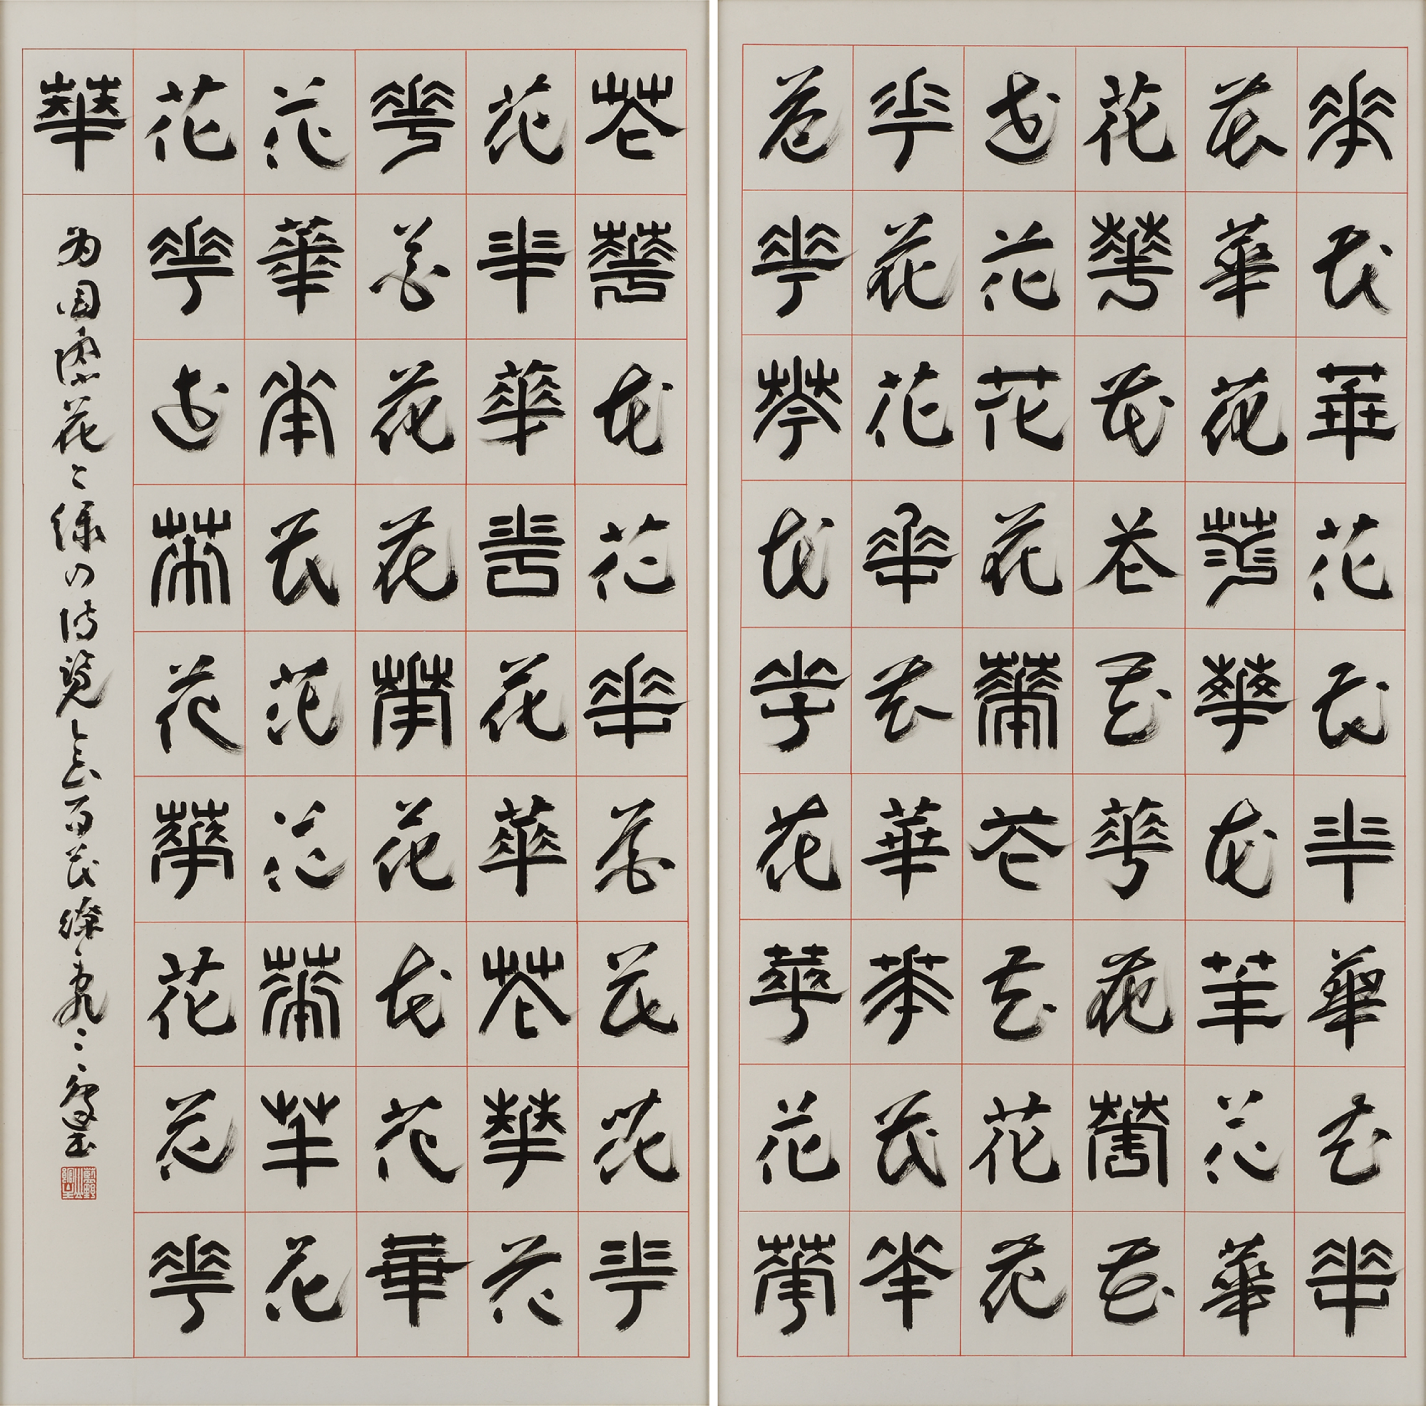 華花華花花華華花華
花華花華華花華花華
花華花花花華花華花
花花花花華花花花花
華花花華花華華花華
花華華花華花華花華
花華花花華花花花華
花華華華花華花華花
華花花花華花花花華
花華華花花花華華花
花華花華花華花花華
華
为国際花と緑の博覧会百花繚乱